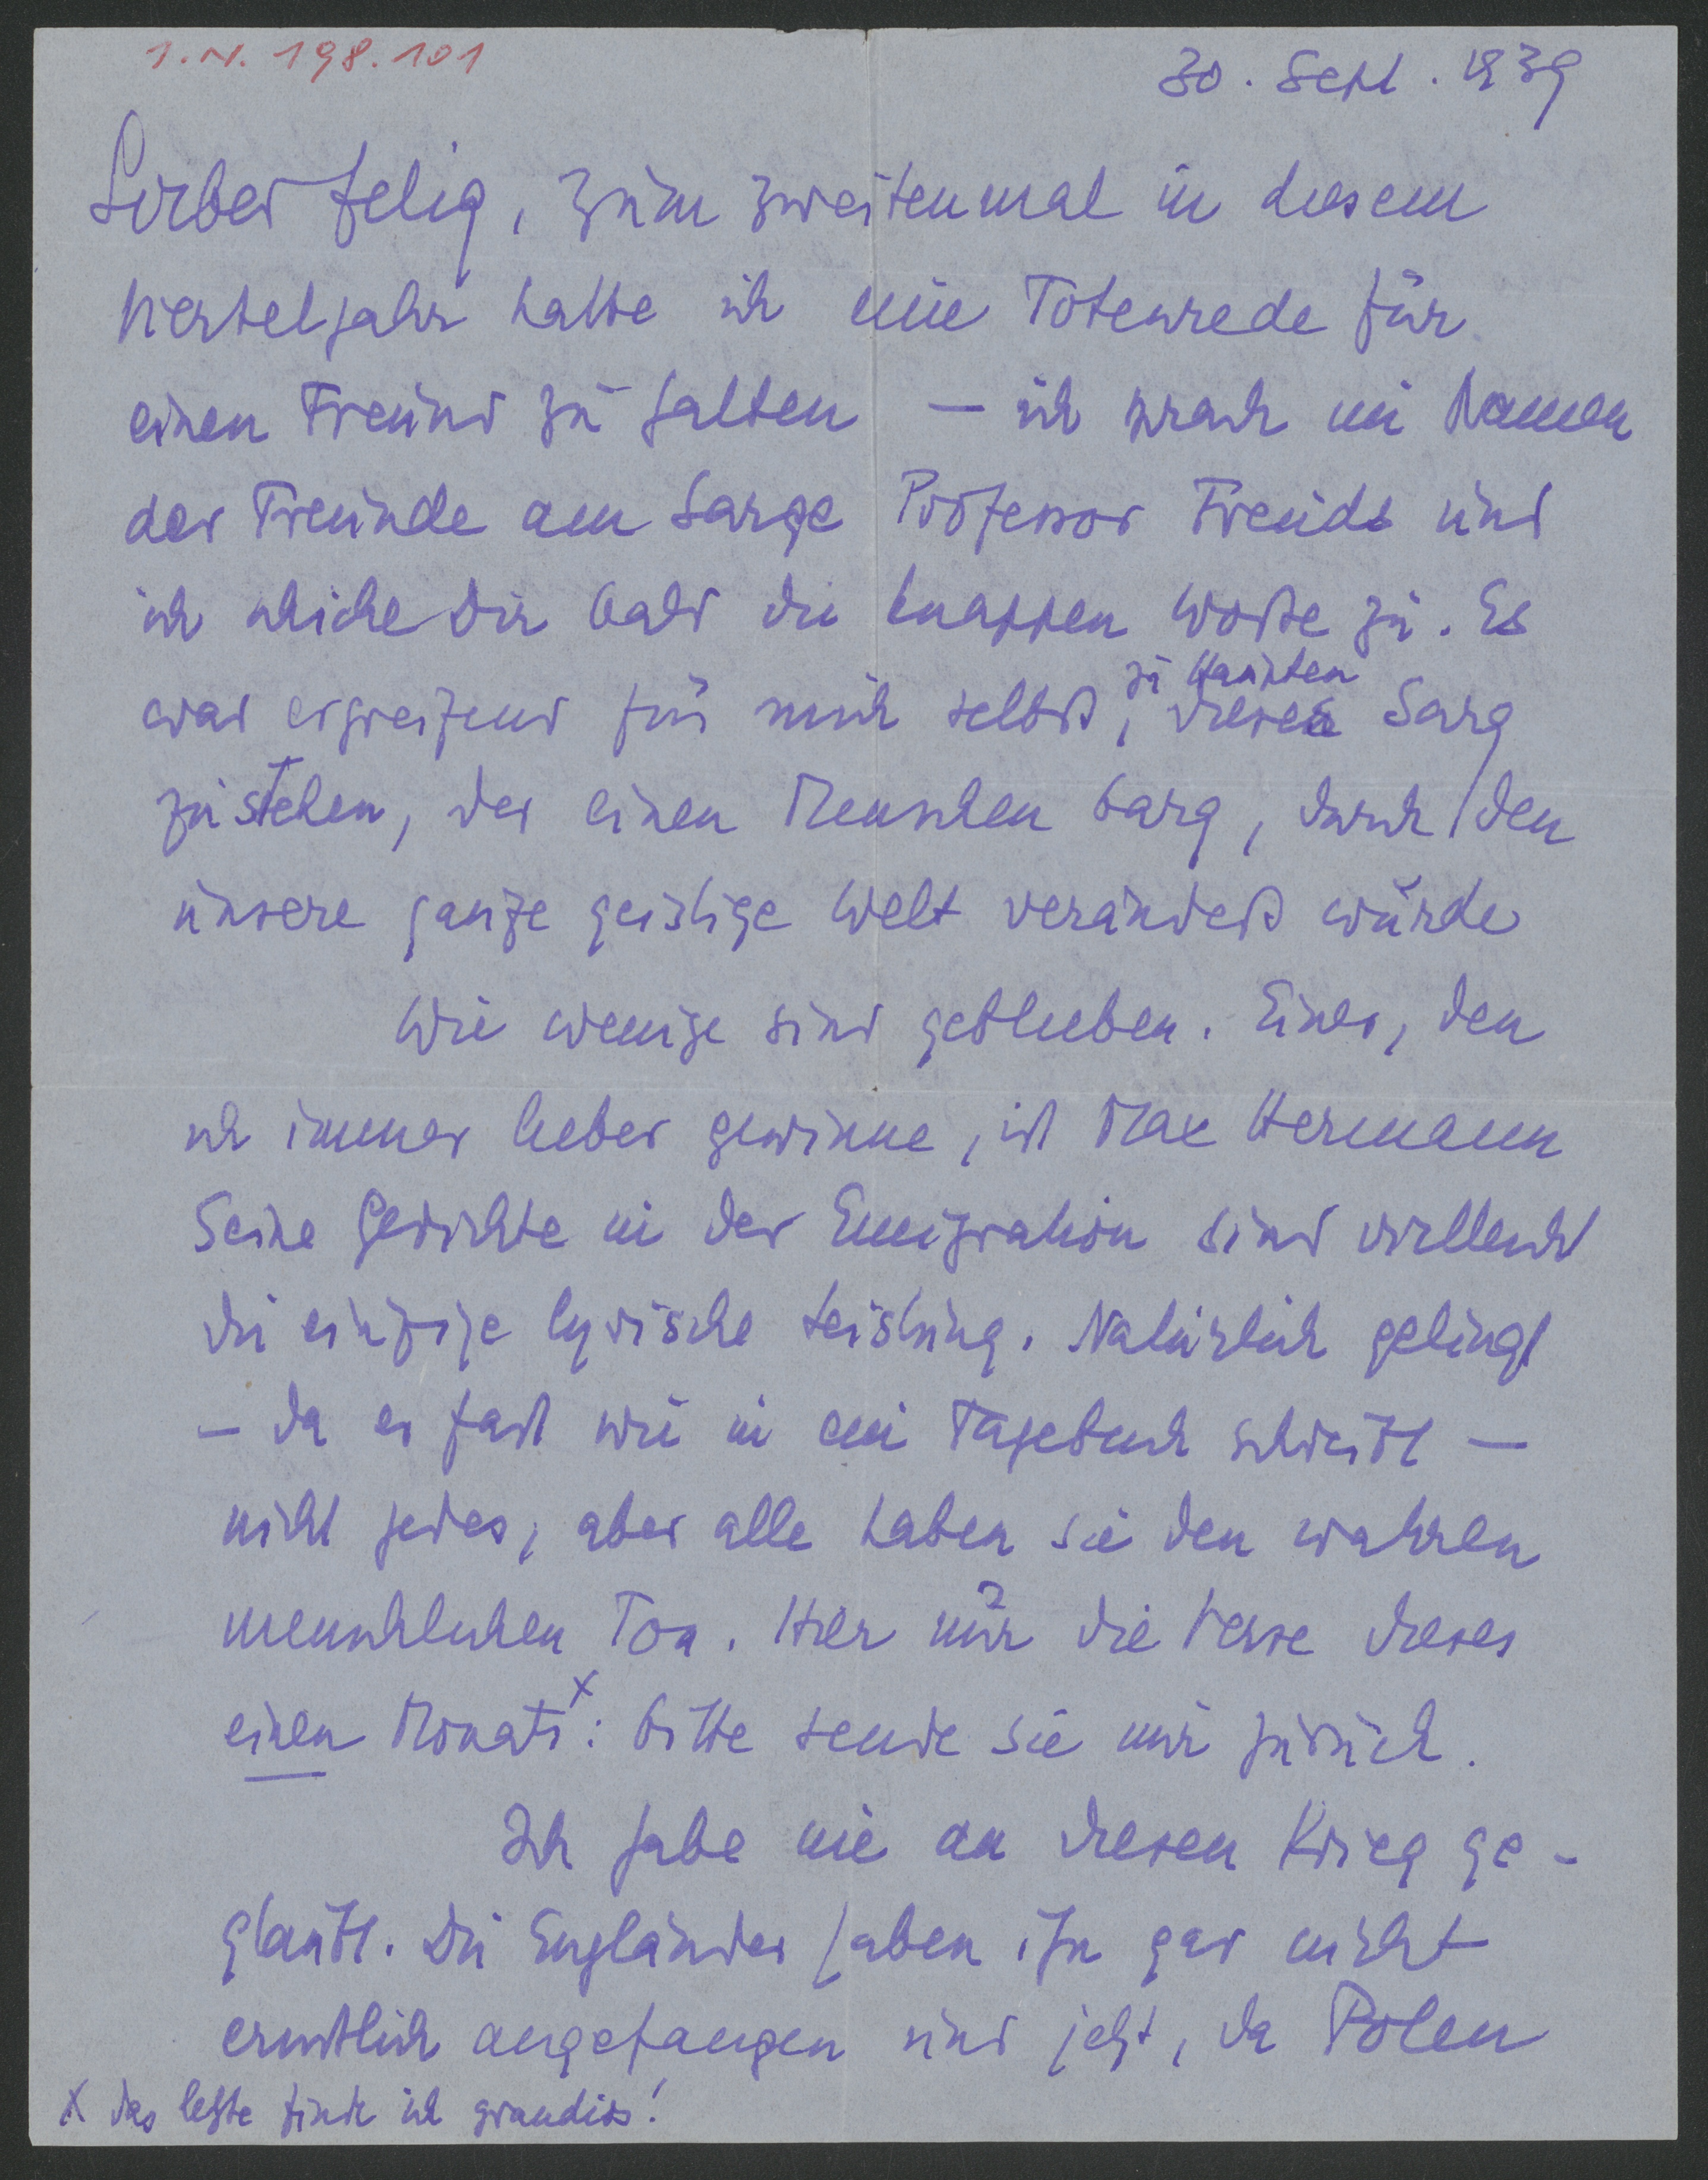 I.N. 198.101
30. Sept. 1939
Lieber Felix, zum zweitenmal in diesem
Vierteljahr hatte ich eine Totenrede für
einen Freund zu halten – ich sprach im Namen
der Freunde am Sarge Professor Freuds und
ich schicke Dir bald die knappen Worte zu. Es
war ergreifend für mich selbst, zu Häupten dieses Sarg
zu stehen, der einen Menschen barg, durch den
unsere ganze geistige Welt verändert wurde
Wie wenige sind geblieben. Einer, den
ich immer lieber gewinne, ist Max Hermann
Seine Gedichte in der Emigration sind vielleicht
die einzige lyrische Leistung. Natürlich gelingt
– da er fast wie in ein Tagebuch schreibt –
nicht jedes, aber alle haben sie den wahren
menschlichen Ton. Hier nur die Verse dieses
einen Monats x: bitte sende sie mir zurück.
Ich habe nie an diesen Krieg ge-
glaubt. Die Engländer haben ihn gar nicht
ernstlich angefangen und jetzt, da Polen
x das letzte finde ich grandios!